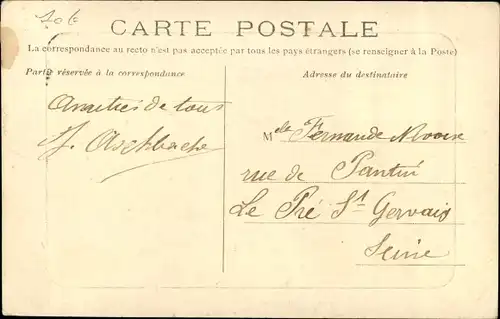 CARTE POSTALE
La correspondance au recto n'est pas acceptée par tous les pays étrangers (se renseigner à la Poste)
Partie réservée à la correspondance
Adresse du destinataire
Amitiés de tous
Mlle Fernande
rue de Pantin
Le Pré St Gervais
Seine